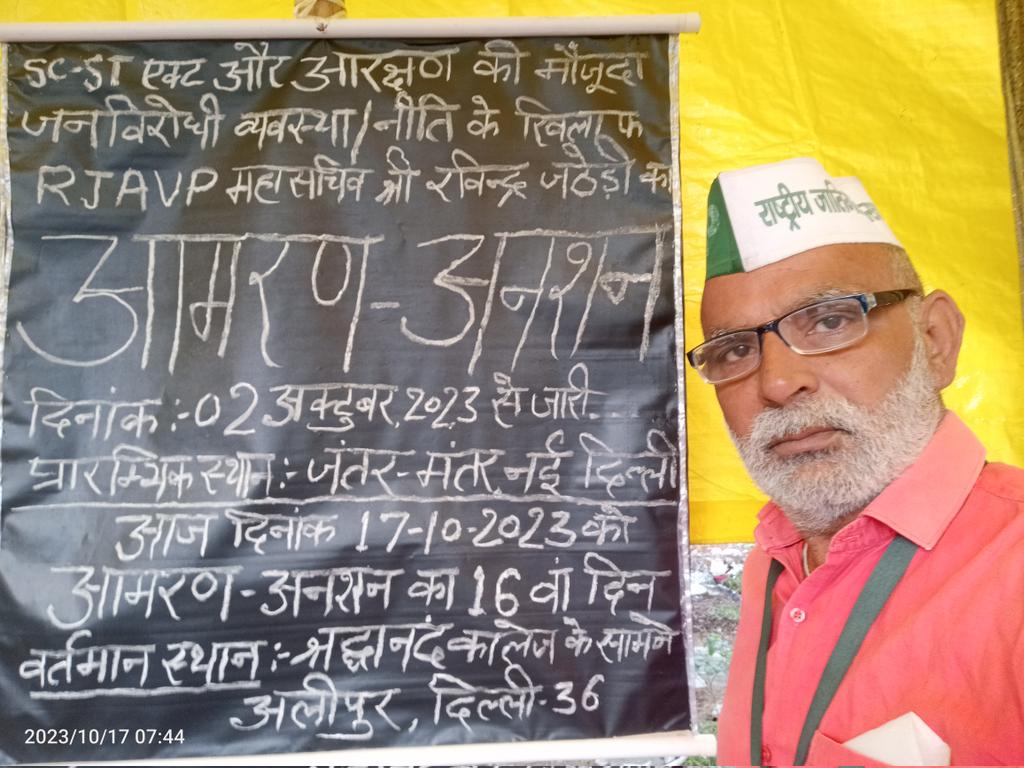 SC-ST एक्ट और आरक्षण की मौजूदा
जनविरोधी व्यवस्था/नीति के खिलाफ
RJAVP महासचिव श्री रविन्द्र जठेड़ी का
आमरण-अनशन
दिनांक:-02 अक्टुबर, 2023 से जारी....
प्रारम्भिक स्थान:- जंतर-मंतर, नई दिल्ली
आज दिनांक 17-10-2023 को
आमरण-अनशन का 16 वां दिन
वर्तमान स्थान:- श्रद्धानंद कालेज के सामने
अलीपुर, दिल्ली-36
राष्ट्रीय
2023/10/17 07:44